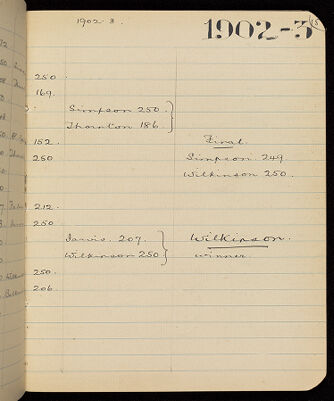 1902-3.
1902-3
250.
169.
Simpson 250
Thornton 186.
152.
250
Final.
Simpson. 249
Wilkinson 250.
212.
250
Jarvis. 207.
Wilkinson 250
Wilkinson.
winner
250.
206.